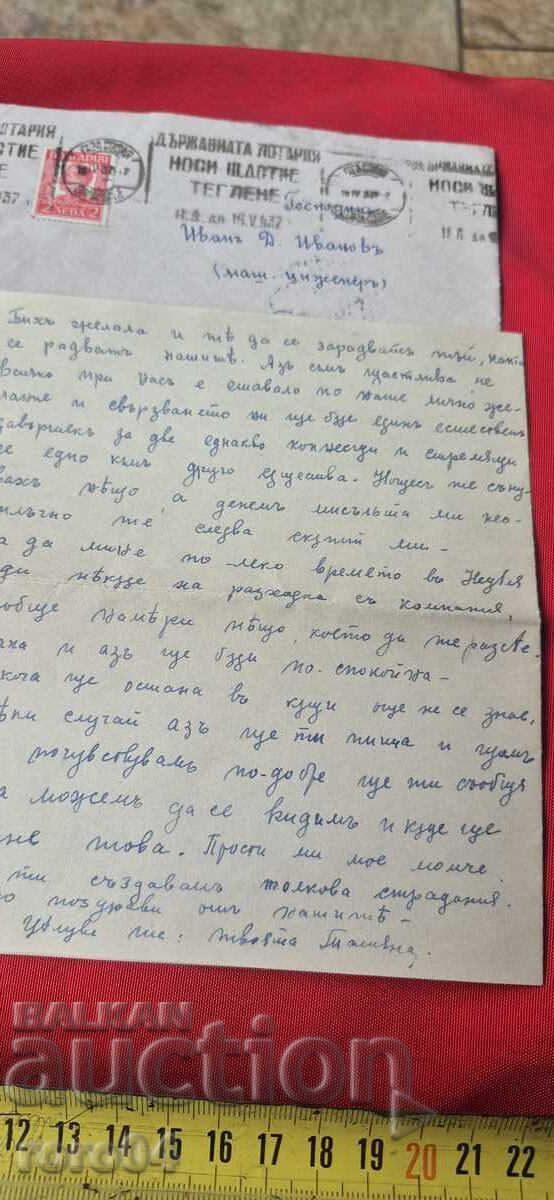 ЛОТАРИЯ
ДЪРЖАВНАТА ЛОТАРИЯ
НОСИ ЩАСТИЕ
ТЕГЛЕНЕ
НОСИ ЩА
ТЕГЛЕ
БЪЛГАРИЯ
2 ЛЕВА 2
Господинъ
Иванъ Д. Ивановъ
(маш. инженеръ)
Бихъ желала и тѣ да се зарадватъ тъй, както
се радватъ нашитѣ. Азъ съмъ щастлива
всичко при насъ е ставало по наше лично же-
и свързването ни ще бѫде единъ естественъ
за две еднакво и стремящи
се едно къмъ друго сѫщества. Нощесъ же съну-
вахъ нѣщо, а денемъ мисъльта ми нео-
тлъчно те следва скѫпи ми -
да мине по-леко времето въ Недѣля
нѣкѫде на разходка съ компания,
намѣри нѣщо, което да те развле-
и азъ ще бѫда по-спокойна -
ще остана въ кѫщи още не се знае,
случай азъ ще ти пиша и щомъ
почувствувамъ по-добре ще ти съобщя
можемъ да се видимъ и кѫде ще
това. Прости ми мое момче
ти създавамъ толкова страдания.
поздрави отъ нашитѣ -
Цѣлува те: твоята
BALKAN
auction
toro04
12 13 14 15 16 17 18 19 20 21 22